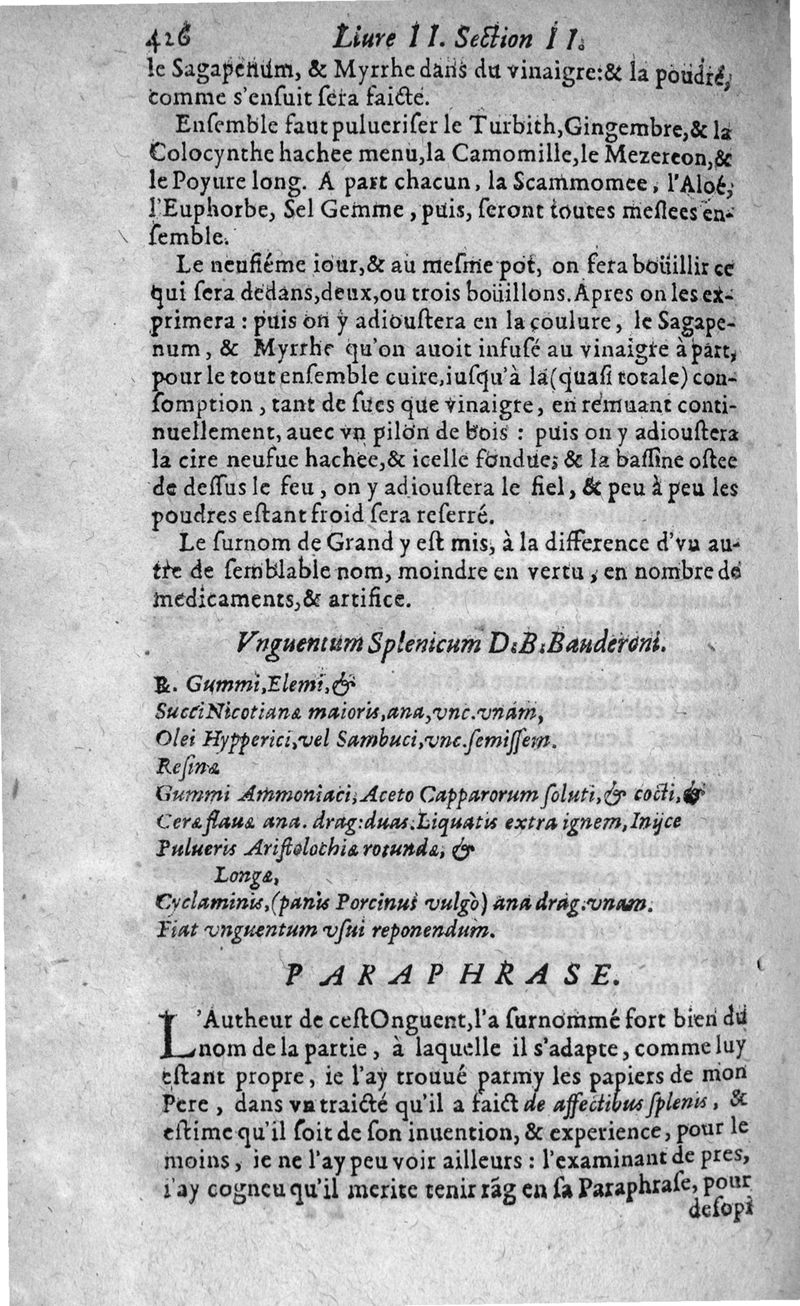 426 Liure II. Section II.
le Sagapenum, & Myrrhe dans du vinaigre:& la poudre,
comme s'ensuit sera faicte.
Ensemble faut pulueriser le Turbith,Gingembre,& la
Colocynthe hachee menu,la Camomille,le Mezereon,&
le Poyure long. A part chacun, la Scammomee, l'Aloé,
l'Euphorbe, Sel Gemme, puis, seront toutes meslees en-
semble.
Le neufiéme iour,& au mesme pot, on fera boüillir ce
qui sera dedans,deux,ou trois boüillons.Apres on les ex-
primera : puis on y adioustera en la coulure, le Sagape-
num, & Myrrhe qu'on auoit infusé au vinaigre à part,
pour le tout ensemble cuire,iusqu'à la(quasi totale) con-
somption, tant de sucs que vinaigre, en remuant conti-
nuellement, auec vn pilon de bois : puis on y adioustera
la cire neufue hachee,& icelle fondue; & la bassine ostee
de dessus le feu, on y adioustera le fiel, & peu à peu les
poudres estant froid sera reserré.
Le surnom de Grand y est mis, à la difference d'vn au-
tre de semblable nom, moindre en vertu, en nombre de
medicaments,& artifice.
Vnguentum Splenicum D.B.Bauderoni.
℞. Gummi,Elemi,&
Succi Nicotianæ maioris,ana,vnc.vnam,
Olei Hypperici,vel Sambuci,vnc.semissem.
Resinæ
Gummi Ammoniaci,Aceto Capparorum soluti,& cocti,&
Ceræ flauæ ana. drag:duas.Liquatis extra ignem,Inijce
Pulueris Aristolochiæ rotundæ, &
Longæ,
Cyclaminis,(panis Porcinus vulgò) ana drag.vnam.
Fiat vnguentum vsui reponendum.
PARAPHRASE.
L'Autheur de cest Onguent,l'a surnommé fort bien du
nom de la partie, à laquelle il s'adapte, comme luy
estant propre, ie l'ay trouué parmy les papiers de mon
Pere, dans vn traicté qu'il a faict de affectibus splenis, &
estime qu'il soit de son inuention, & experience, pour le
moins, ie ne l'ay peu voir ailleurs : l'examinant de pres,
i'ay cogneu qu'il merite tenir rãg en sa Paraphrase, pour
desopi